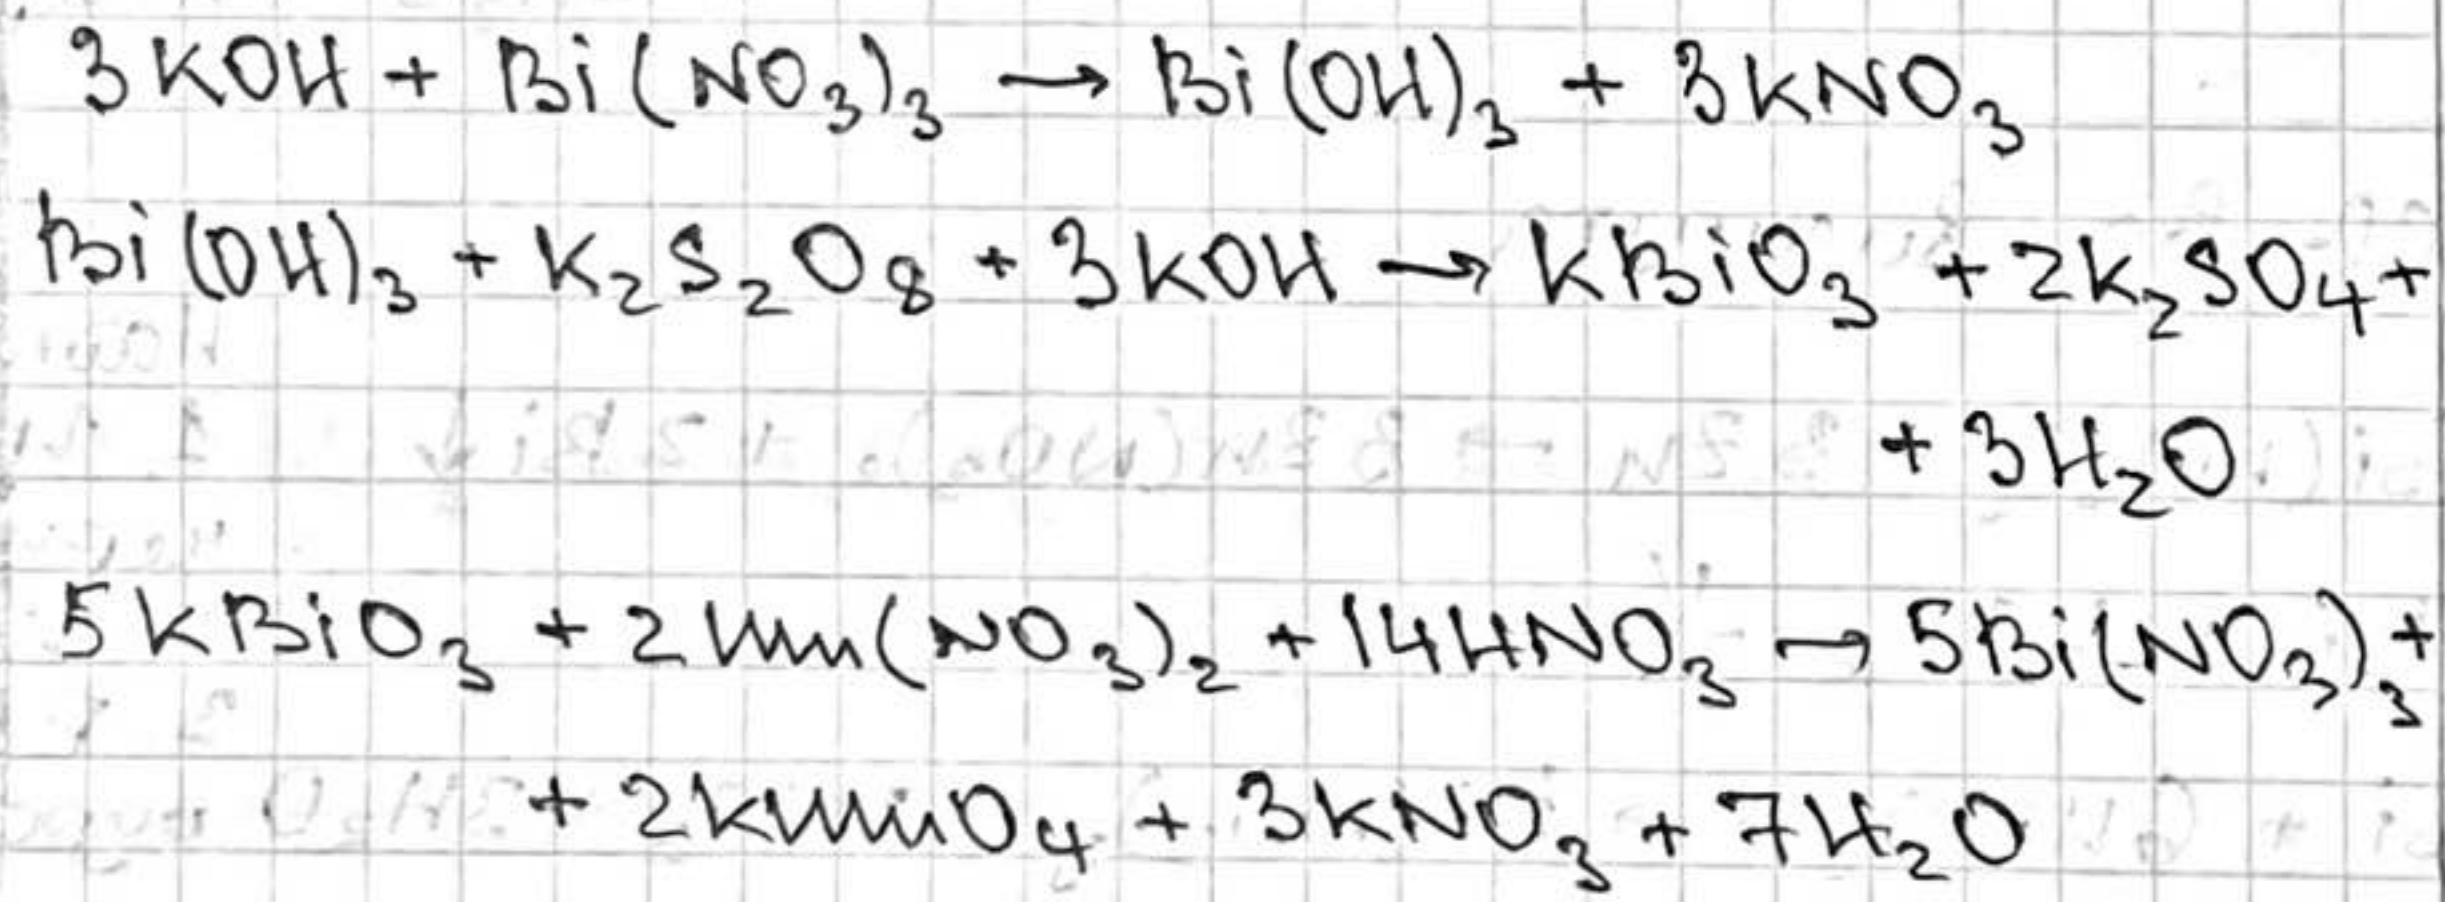 3KOH + Bi(NO₃)₃ → Bi(OH)₃ + 3KNO₃
Bi(OH)₃ + K₂S₂O₈ + 3KOH → KBiO₃ + 2K₂SO₄ +
+ 3H₂O
5KBiO₃ + 2Mn(NO₃)₂ + 14HNO₃ → 5Bi(NO₃)₃ +
+ 2KMnO₄ + 3KNO₃ + 7H₂O